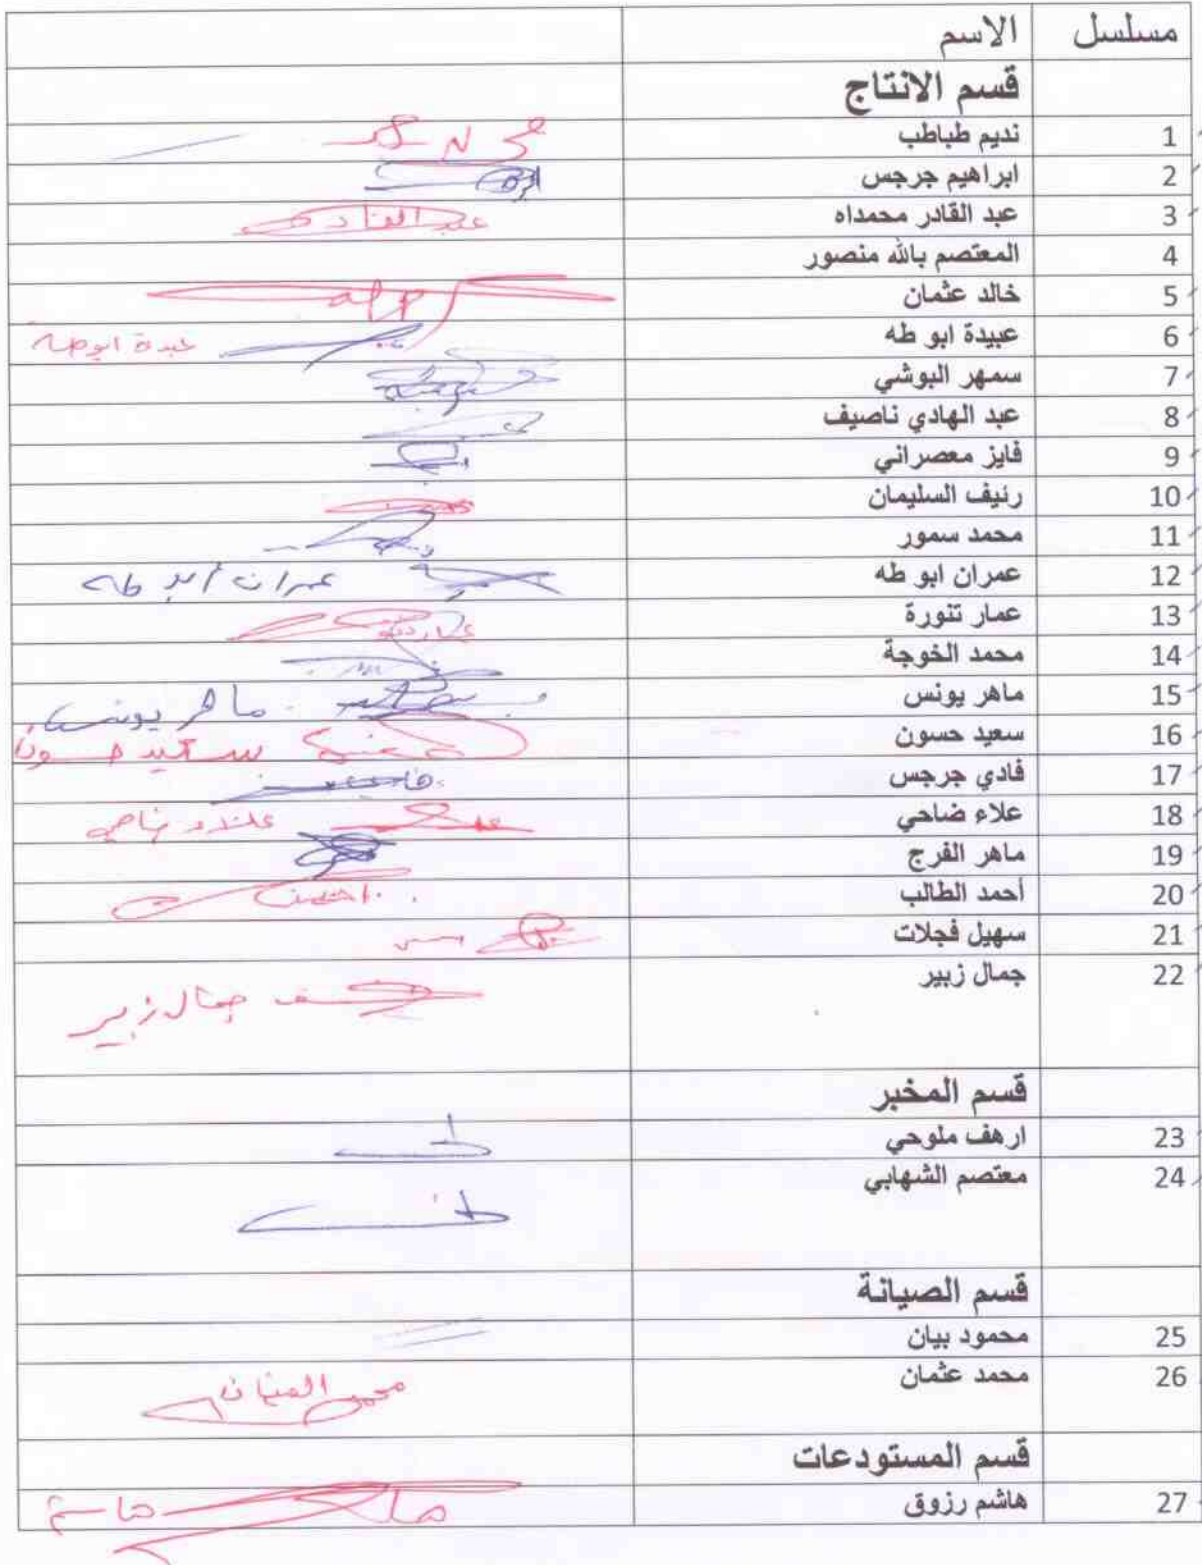 مسلسل الاسم
قسم الانتاج
1 نديم طباطب
2 ابراهيم جرجس
3 عبد القادر محمداه عبد القادر
4 المعتصم بالله منصور
5 خالد عثمان
6 عبيدة ابو طه عبدة ابوطه
7 سمهر البوشي
8 عبد الهادي ناصيف
9 فايز معصراني
10 رئيف السليمان
11 محمد سمور
12 عمران ابو طه عمران أبو طه
13 عمار تنورة
14 محمد الخوجة
15 ماهر يونس ماهر يونس
16 سعيد حسون سعيد حسون
17 فادي جرجس
18 علاء ضاحي
19 ماهر الفرج
20 أحمد الطالب
21 سهيل فجلات
22 جمال زبير جمال زبير
قسم المخبر
23 ارهف ملوحي
24 معتصم الشهابي
قسم الصيانة
25 محمود بيان
26 محمد عثمان
قسم المستودعات
27 هاشم رزوق هاشم